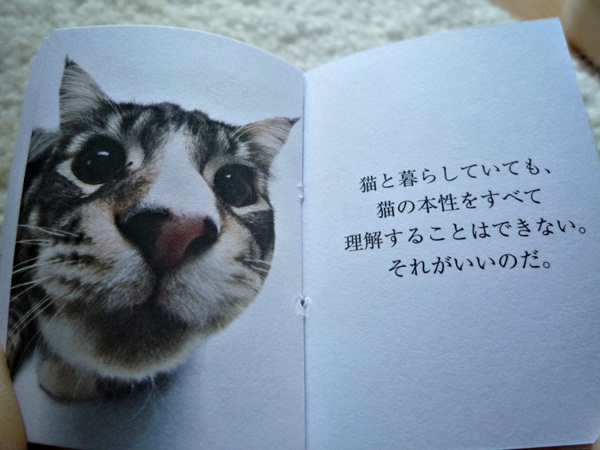 猫と暮らしていても、
猫の本性をすべて
理解することはできない。
それがいいのだ。